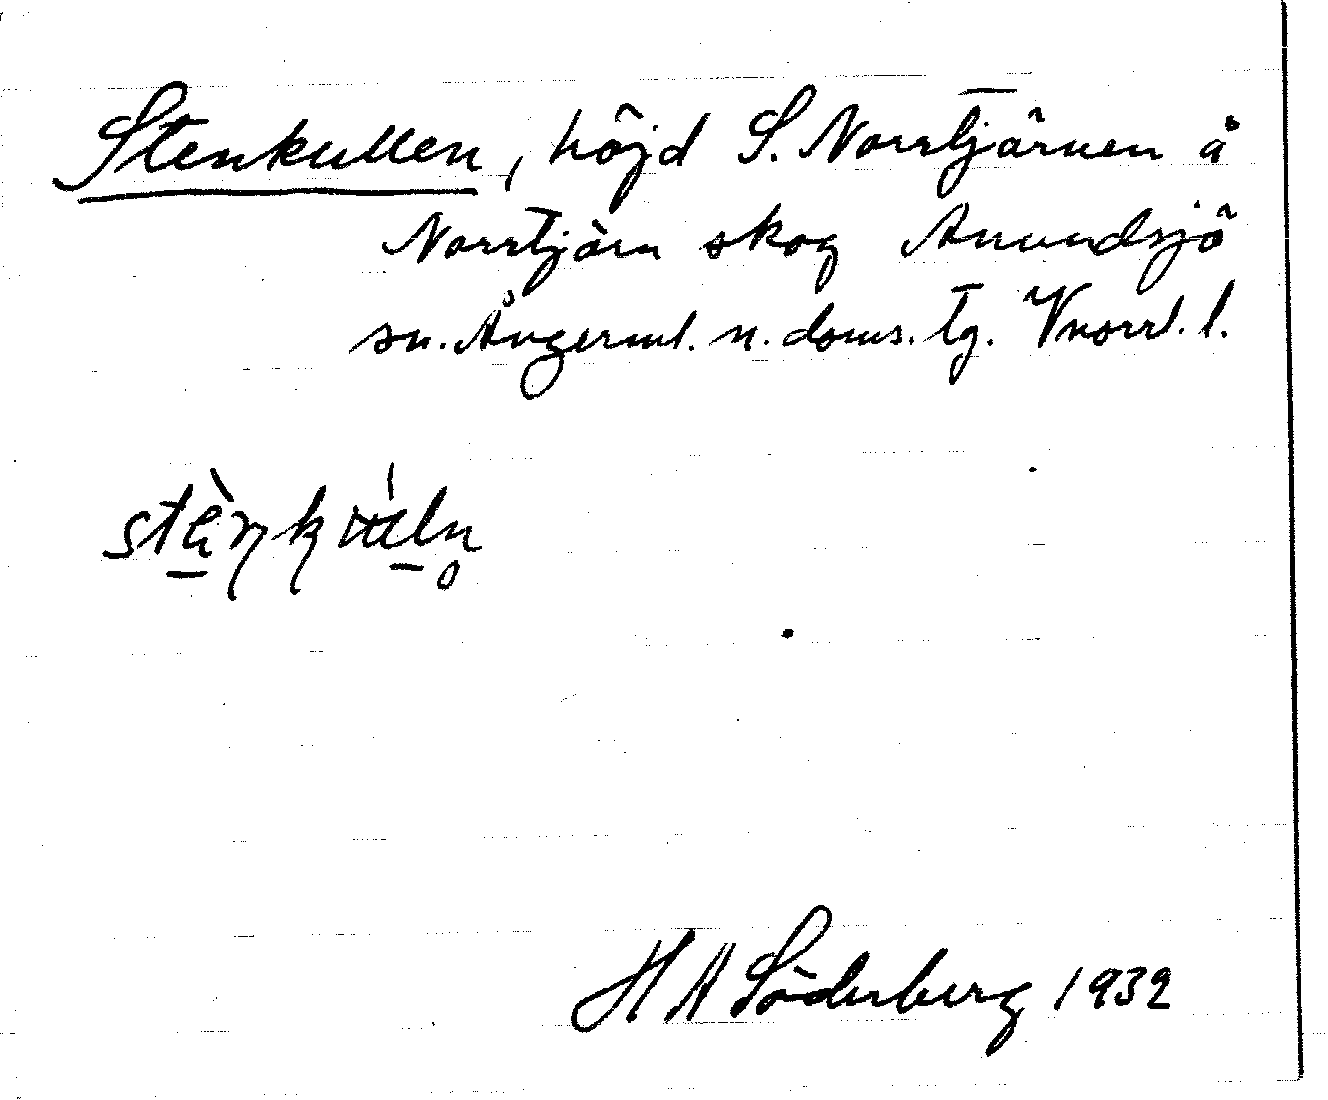 Stenkullen, höjd S. Norrtjärnen å
Norrtjärn skog Anundsjö
sn. Ångerml. n. doms. tg. Vnorrl. l.
H A Söderberg 1932